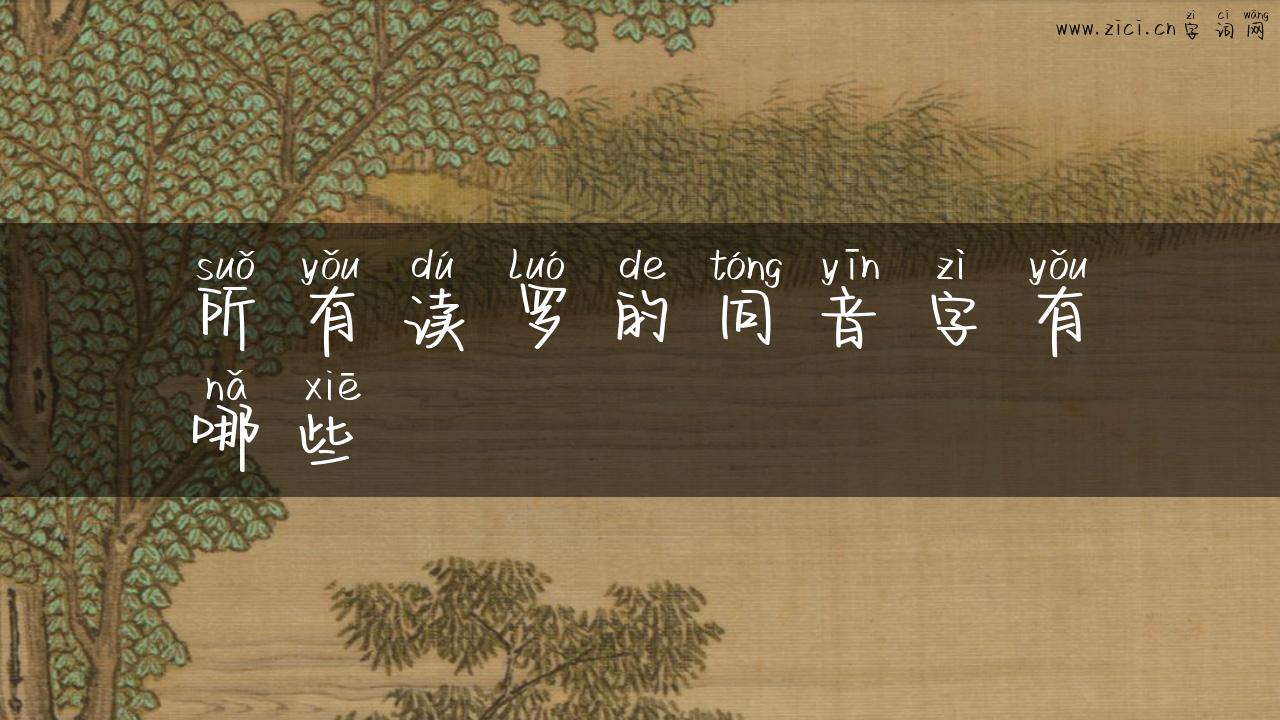 zì cí wǎng
www.zici.cn字词网
suǒ yǒu dú luó de tóng yīn zì yǒu
所有读罗的同音字有
nǎ xiē
哪些